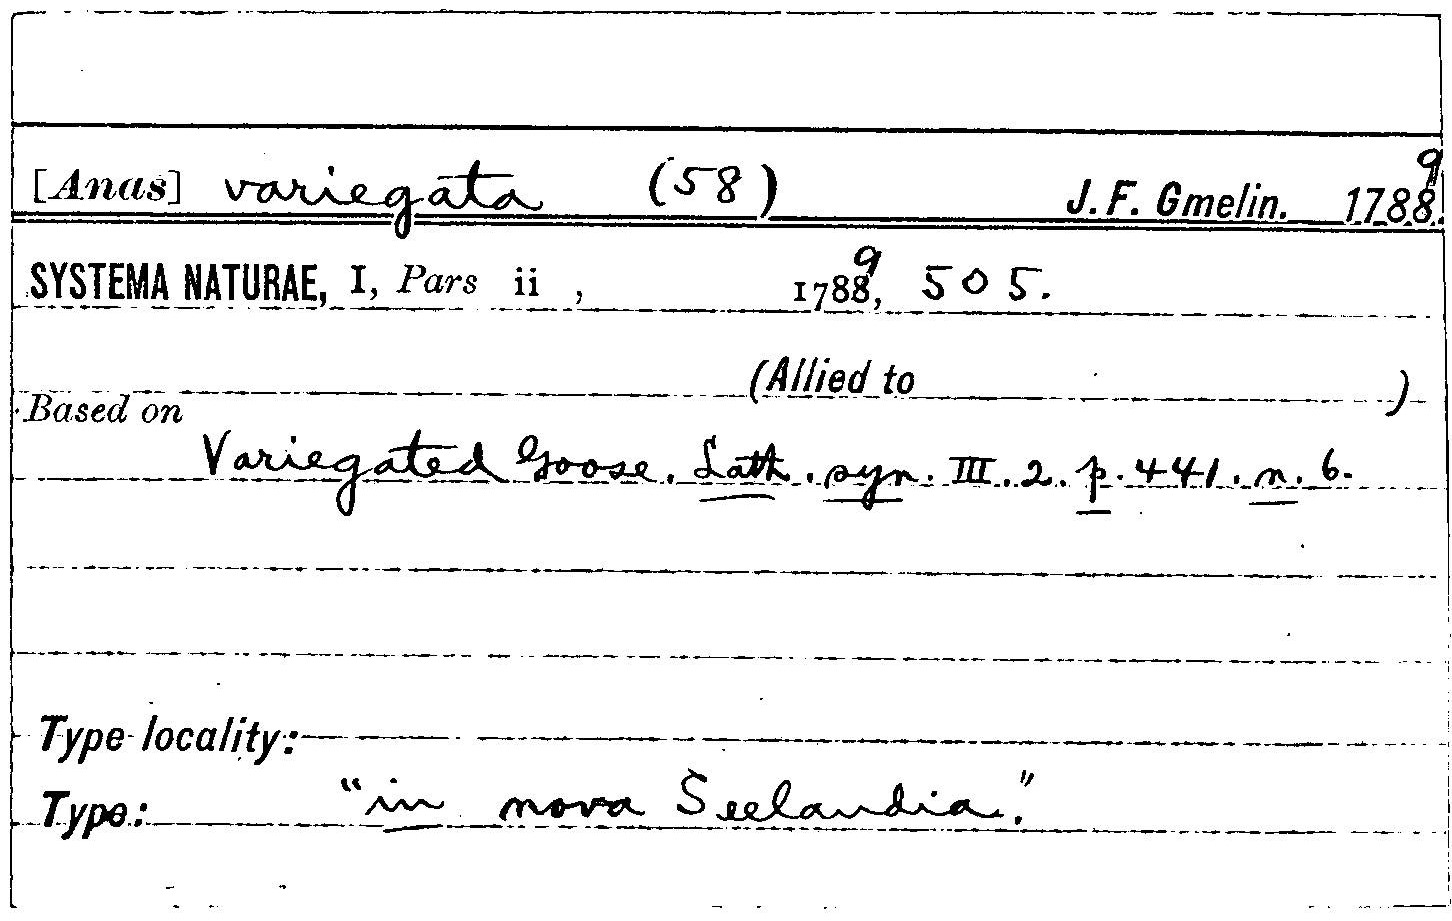 [Anas] variegata (58) J. F. Gmelin. 17889.
SYSTEMA NATURAE, I, Pars ii , 17889, 505.
(Allied to )
Based on
Variegated Goose. Lath. syn. III. 2. p. 441. n. 6.
Type locality:
Type: "in nova Seelandia."